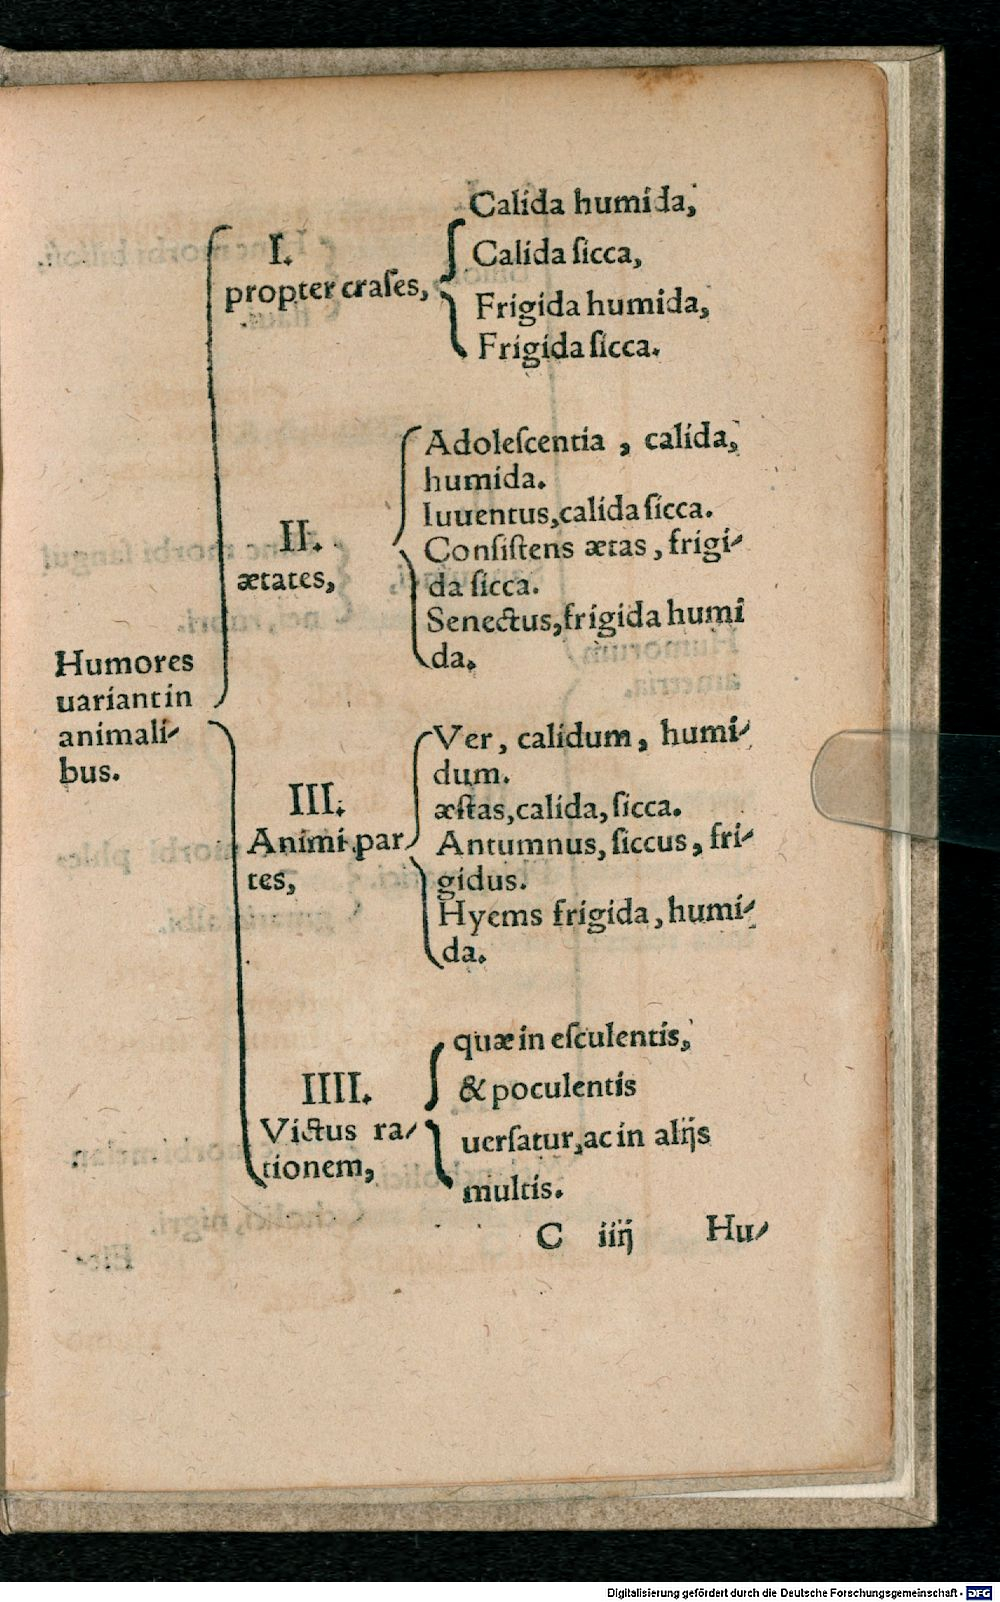 Humores
uariant in
animali⸗
bus.
I.
propter craſes,
Calida humida,
Calida ſicca,
Frigida humida,
Frigida ſicca.
II.
ætates,
Adoleſcentia, calida,
humida.
Iuuentus, calida ſicca.
Conſiſtens ætas, frigi⸗
da ſicca.
Senectus, frigida humi
da.
III.
Animi par
tes,
Ver, calidum, humi⸗
dum.
æſtas, calida, ſicca.
Antumnus, ſiccus, fri⸗
gidus.
Hyems frigida, humi⸗
da.
IIII.
Victus ra⸗
tionem,
quæ in eſculentis,
& poculentis
uerſatur, ac in alijs
multis.
C iiij Hu⸗
Digitalisierung gefördert durch die Deutsche Forschungsgemeinschaft - DFG